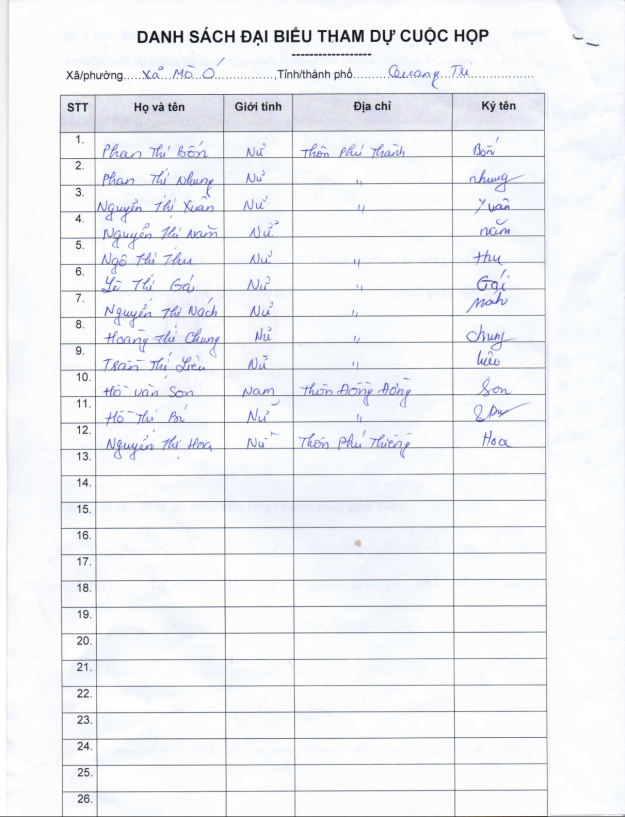 DANH SÁCH ĐẠI BIỂU THAM DỰ CUỘC HỌP
------------------
Xã/phường.....Xã Mò Ó...............Tỉnh/thành phố.........Quảng Trị................
STT Họ và tên Giới tính Địa chỉ Ký tên
1. Phan Thị Bốn Nữ Thôn Phú Thành Bốn
2. Phan Thị Nhung Nữ " nhung
3. Nguyễn Thị Xuân Nữ " Xuân
4. Nguyễn Thị Năm Nữ năm
5. Ngô Thị Thu Nữ " thu
6. Lê Thị Gái Nữ " Gái
7. Nguyễn Thị Nách Nữ " nách
8. Hoàng Thị Chung Nữ " chung
9. Trần Thị Liễu Nữ " liễu
10. Hồ văn Sơn Nam Thôn Đồng Đờng Sơn
11. Hồ Thị Bí Nữ "
12. Nguyễn Thị Hoa Nữ Thôn Phú Thiềng Hoa
13.
14.
15.
16.
17.
18.
19.
20.
21.
22.
23.
24.
25.
26.